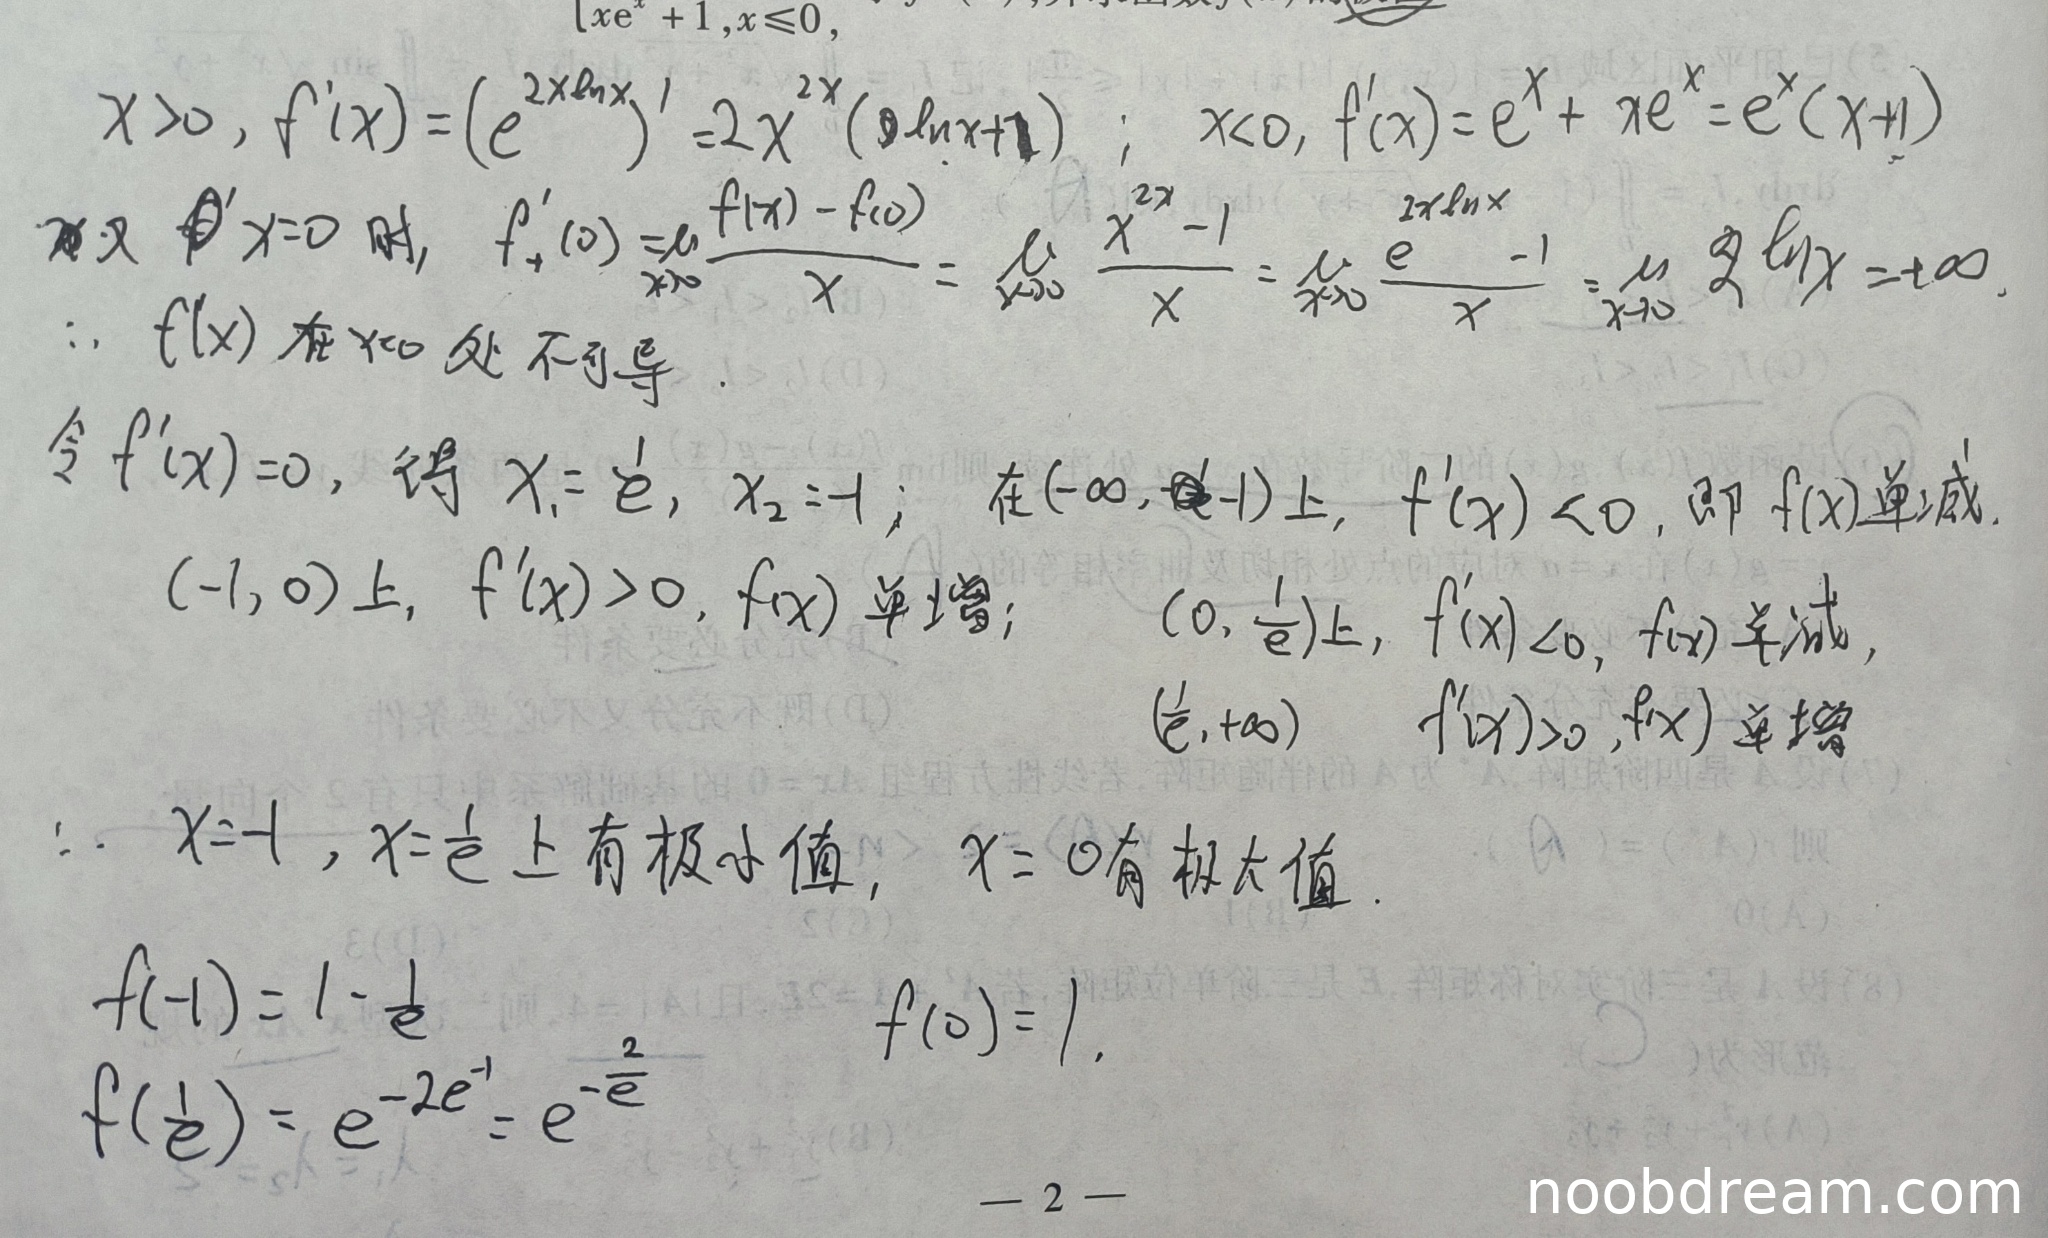 xeˣ + 1, x ≤ 0,
x>0, f'(x) = (e^{2xlnx})' = 2x^{2x}(lnx+1) ; x<0, f'(x) = eˣ + xeˣ = eˣ(x+1)
又 x=0 时, f₊'(0) = lim_{x→0} (f(x)-f(0))/x = lim_{x→0} (x^{2x}-1)/x = lim_{x→0} (e^{2xlnx}-1)/x = lim_{x→0} 2lnx = +∞.
∴ f(x) 在 x=0 处 不可导.
令 f'(x)=0, 得 x₁ = 1/e, x₂ = -1; 在(-∞, -1)上, f'(x)<0, 即 f(x)单减.
(-1, 0)上, f'(x)>0, f(x) 单增; (0, 1/e)上, f'(x)<0, f(x) 单减,
(1/e, +∞) f'(x)>0, f(x) 单增
∴ x=-1, x=1/e 上有极小值, x=0有极大值.
f(-1) = 1 - 1/e f(0) = 1.
f(1/e) = e^{-2e^{-1}} = e^{-2/e}
— 2 —
noobdream.com